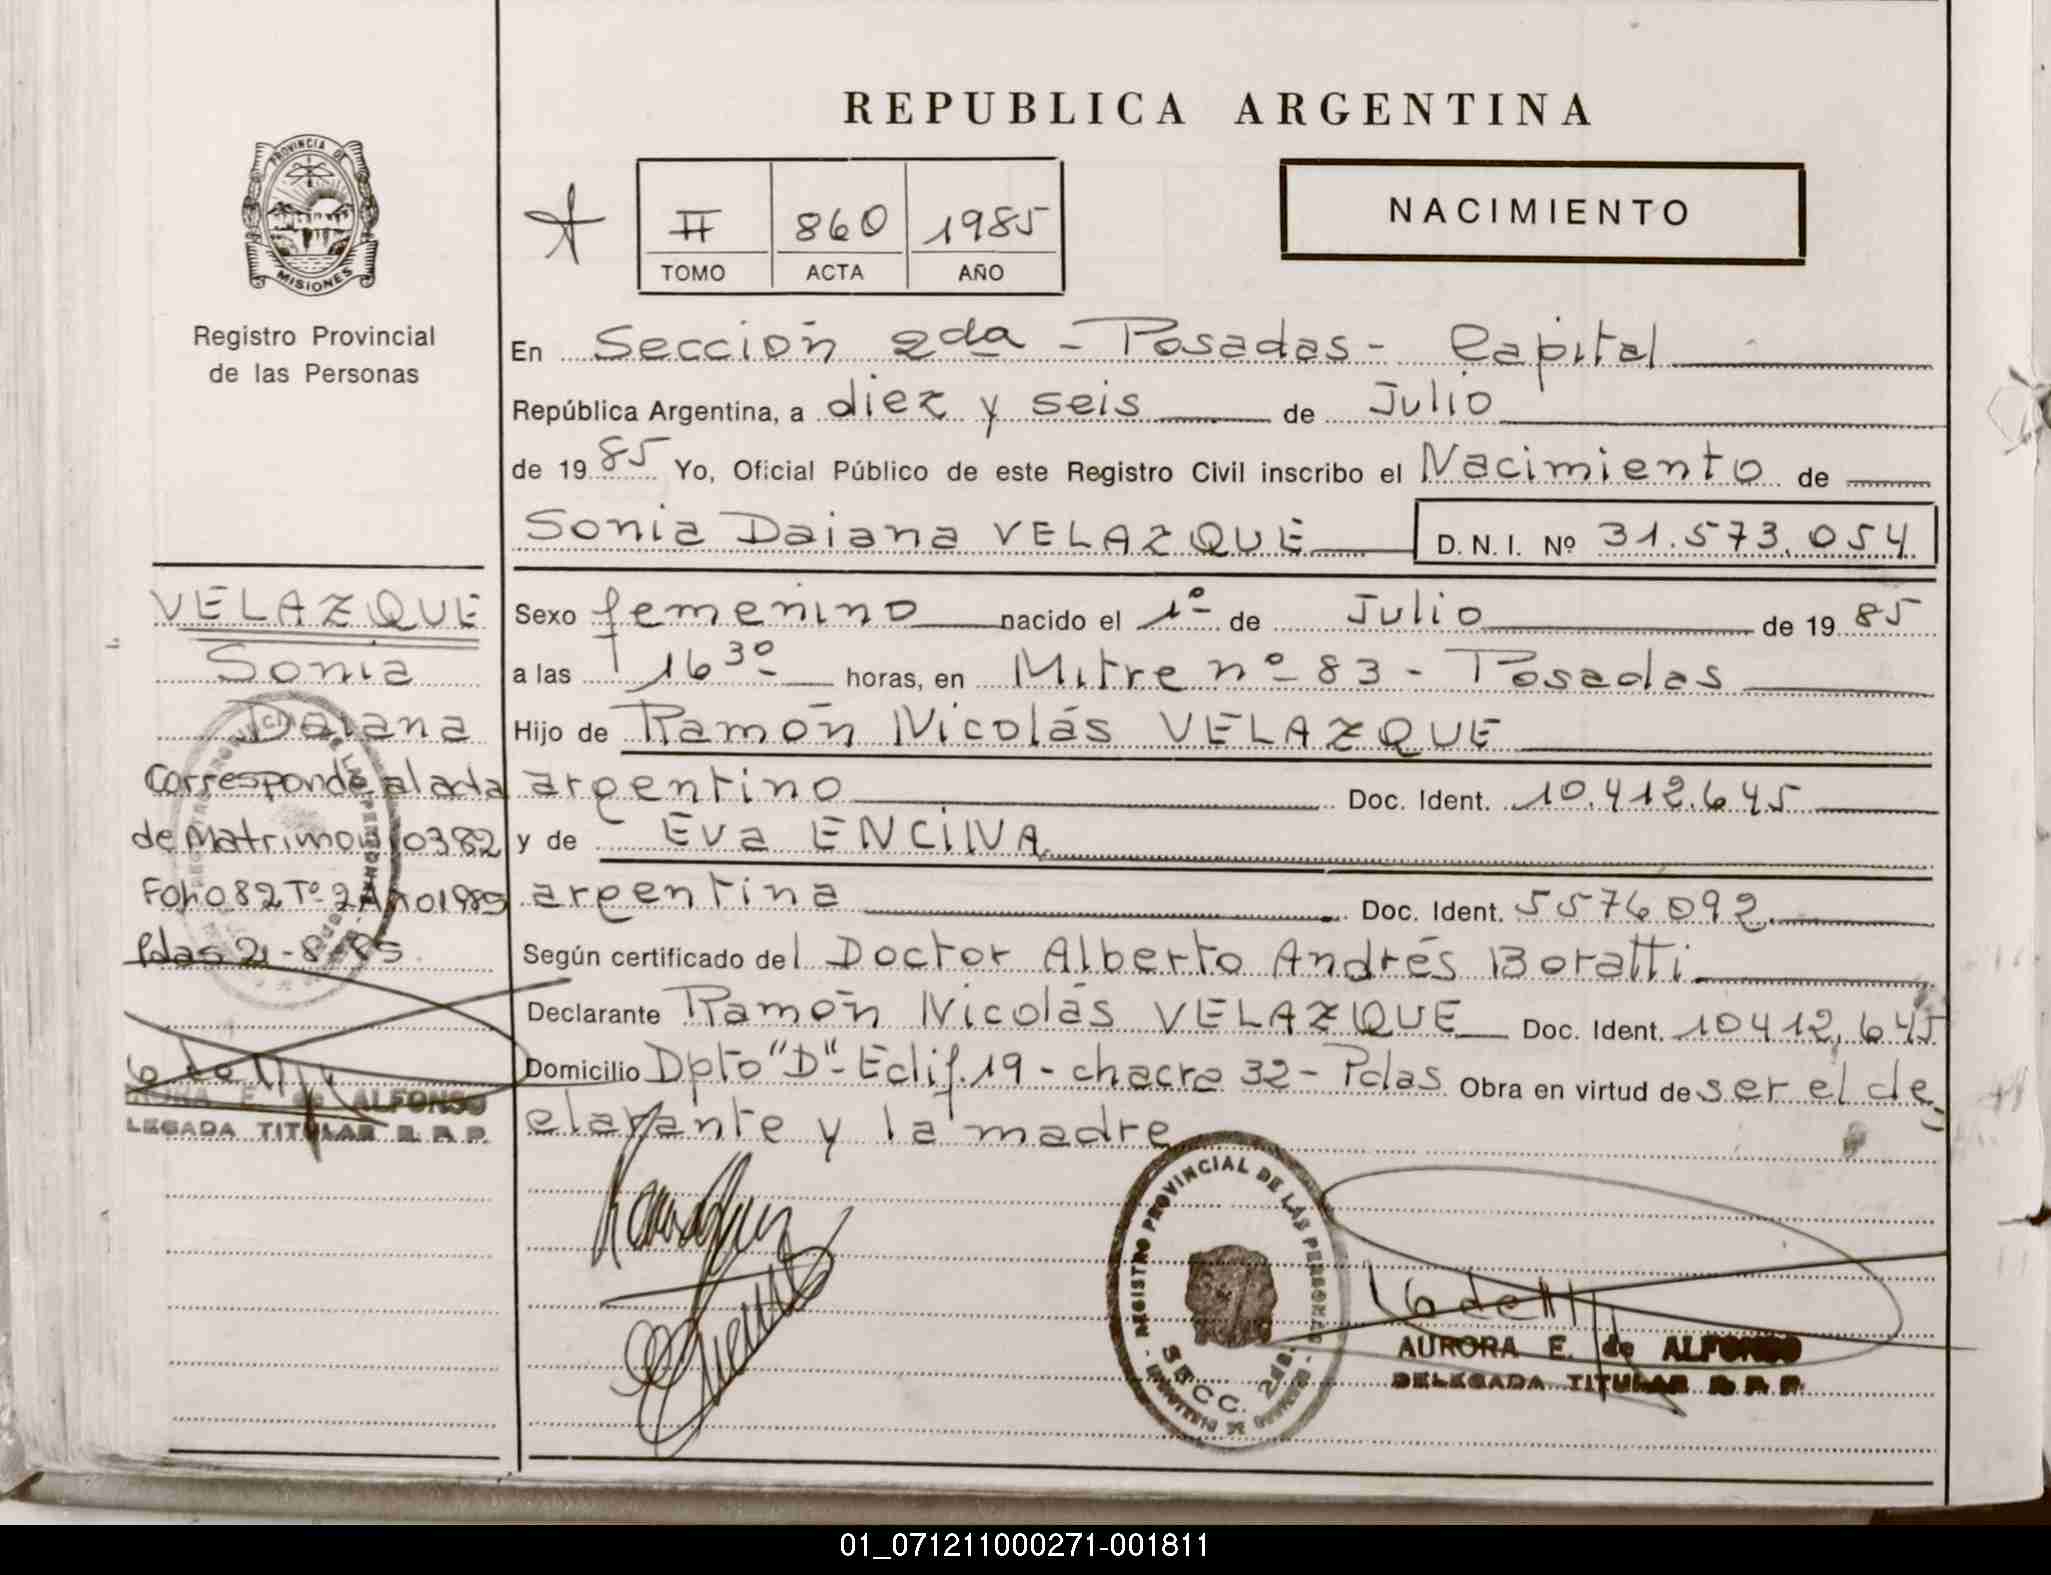 REPUBLICA ARGENTINA
PROVINCIA DE
MISIONES
Registro Provincial
de las Personas
II 860 1985
TOMO ACTA AÑO
NACIMIENTO
En Sección 2da - Posadas - Capital
República Argentina, a diez y seis de Julio
de 1985 Yo, Oficial Público de este Registro Civil inscribo el Nacimiento de
Sonia Daiana VELAZQUE D. N. I. Nº 31.573.054
VELAZQUE
Sonia
Daiana
Corresponde al acta
de Matrimonio 382
Folio 82 Tº 2 Año 1985
Pdas 21-8-85
ALFONSO
LEGADA TITULAR R. P. P.
Sexo femenino nacido el 1º de Julio de 1985
a las 16 30 horas, en Mitre nº 83 - Posadas
Hijo de Ramón Nicolás VELAZQUE
argentino Doc. Ident. 10.412.645
y de Eva ENCINA
argentina Doc. Ident. 5576092
Según certificado del Doctor Alberto Andrés Boratti
Declarante Ramón Nicolás VELAZQUE Doc. Ident. 10412.645
Domicilio Dpto "D" - Edif. 19 - chacra 32 - Pdas Obra en virtud de ser el de
clarante y la madre
REGISTRO PROVINCIAL DE LAS PERSONAS
SECC. 2da.
AURORA E. de ALFONSO
DELEGADA TITULAR R. P. P.
01_071211000271-001811